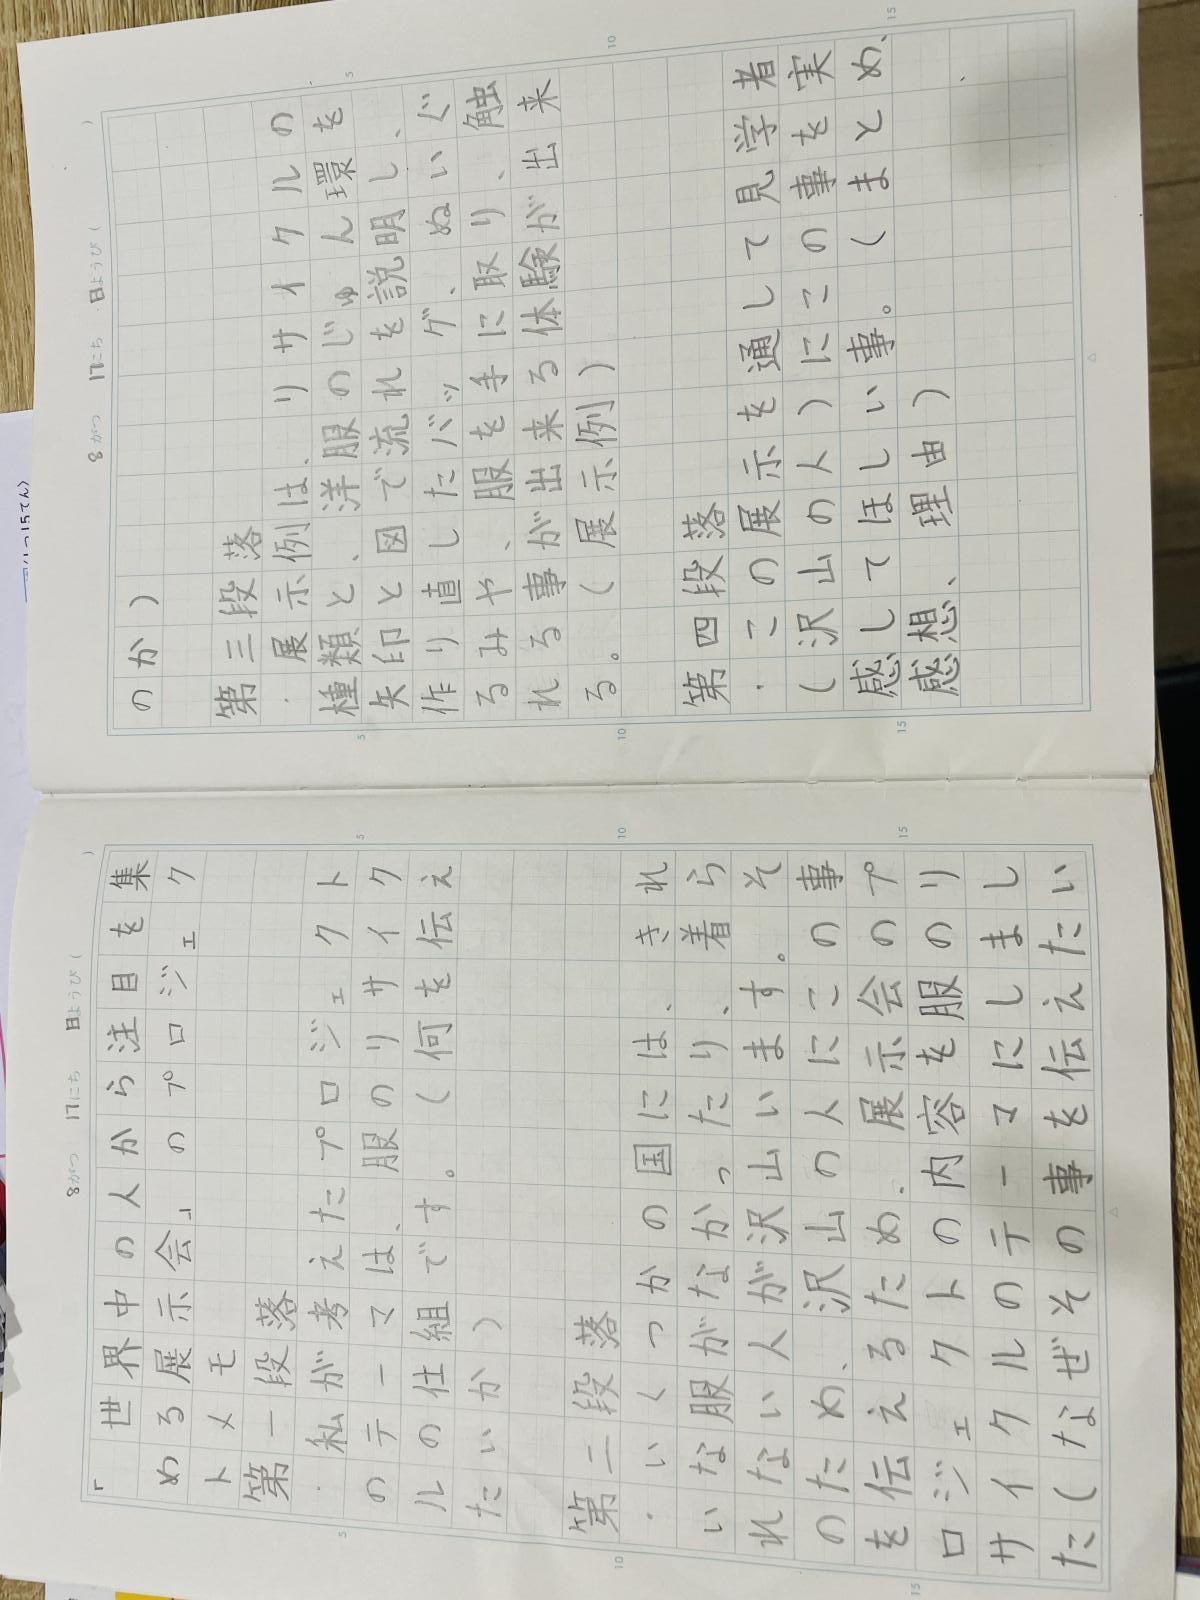 8がつ 17にち 日ようび(　)
「世界中の人から注目を集
める展示会」のプロジェク
トメモ
第一段落
・私が考えたプロジェクト
のテーマは、服のリサイク
ルの仕組です。(何を伝え
たいか)
第二段落
・いくつかの国には、きれ
いな服がなかったり、着ら
れない人が沢山います。そ
のため、沢山の人にこの事
を伝えるため、展示会のプ
ロジェクトの内容を服のリ
サイクルのテーマにしまし
た(なぜその事を伝えたい
8がつ 17にち 日ようび(　)
のか)
第三段落
・展示例は、リサイクルの
種類と、洋服のじゅん環を
矢印と図で流れを説明し、
作り直したバッグ、ぬいぐ
るみや、服を手に取り、触
れる事が出来る体験が出来
る。(展示例)
第四段落
・この展示を通して見学者
(沢山の人)にこの事を実
感してほしい事。(まとめ、
感想、理由)